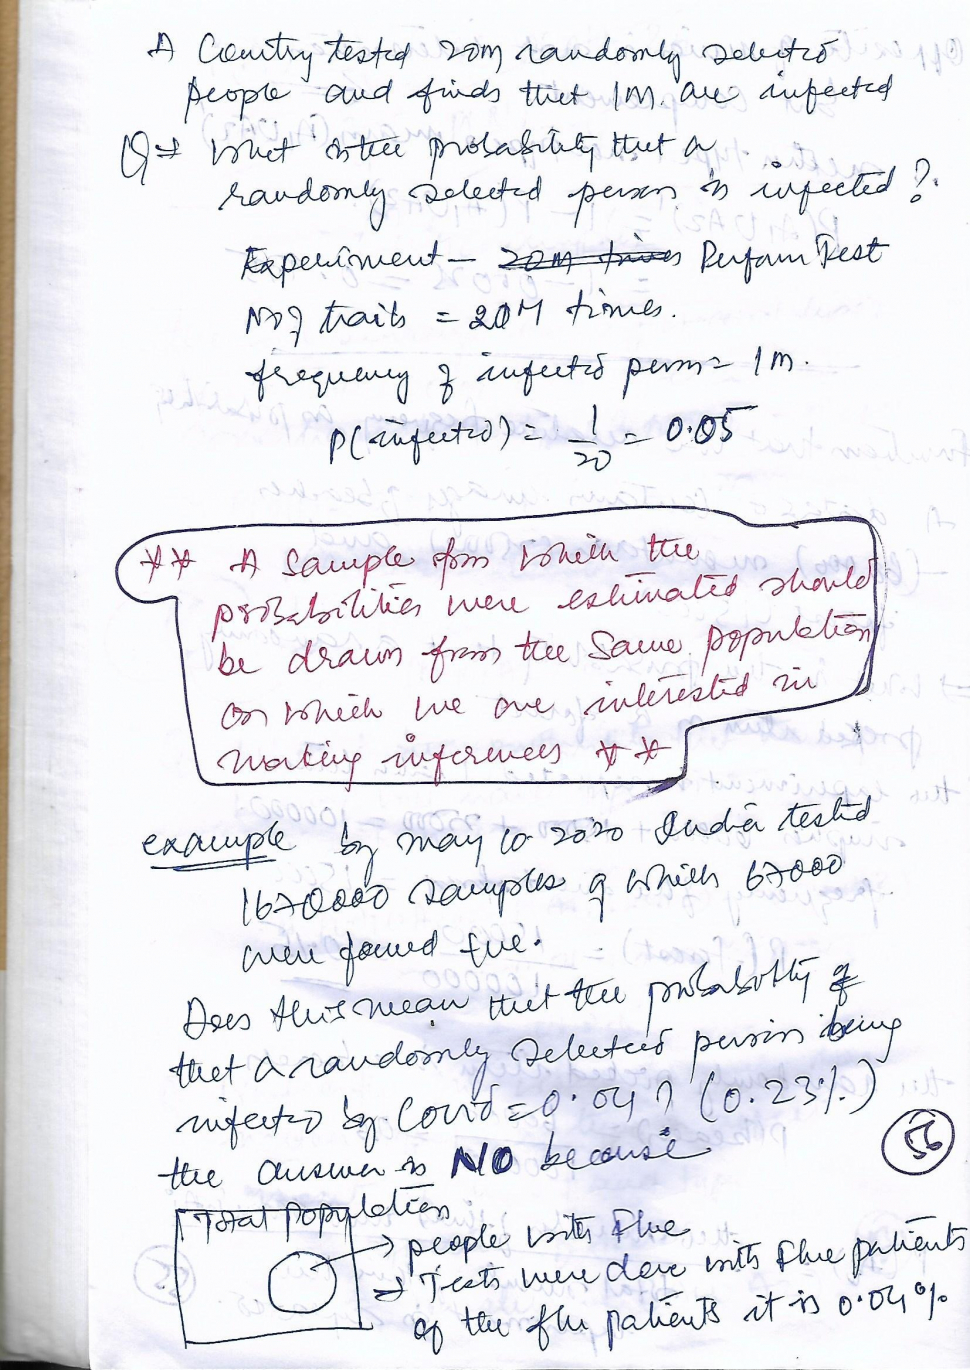 A Country tested 20m randomly selected
people and finds that 1M. are infected
Q⇒ What is the probability that a
randomly selected person is infected?
Experiment — 20m times Perform Test
No of trails = 20M times.
frequency of infected person = 1M.
P(infected) = 1/20 = 0.05
** A Sample from which the
probabilities were estimated should
be drawn from the same population
on which we are interested in
making inferences **
example by may 10 2020 India tested
1670000 samples of which 67000
were found +ve.
Does this mean that the probability of
that a randomly selected person is being
infected by Covid = 0.04 ? (0.23%)
the answer is NO because
Total population
people with Flue
→ Tests were done with Flue patients
of the flu patients it is 0.04%
56